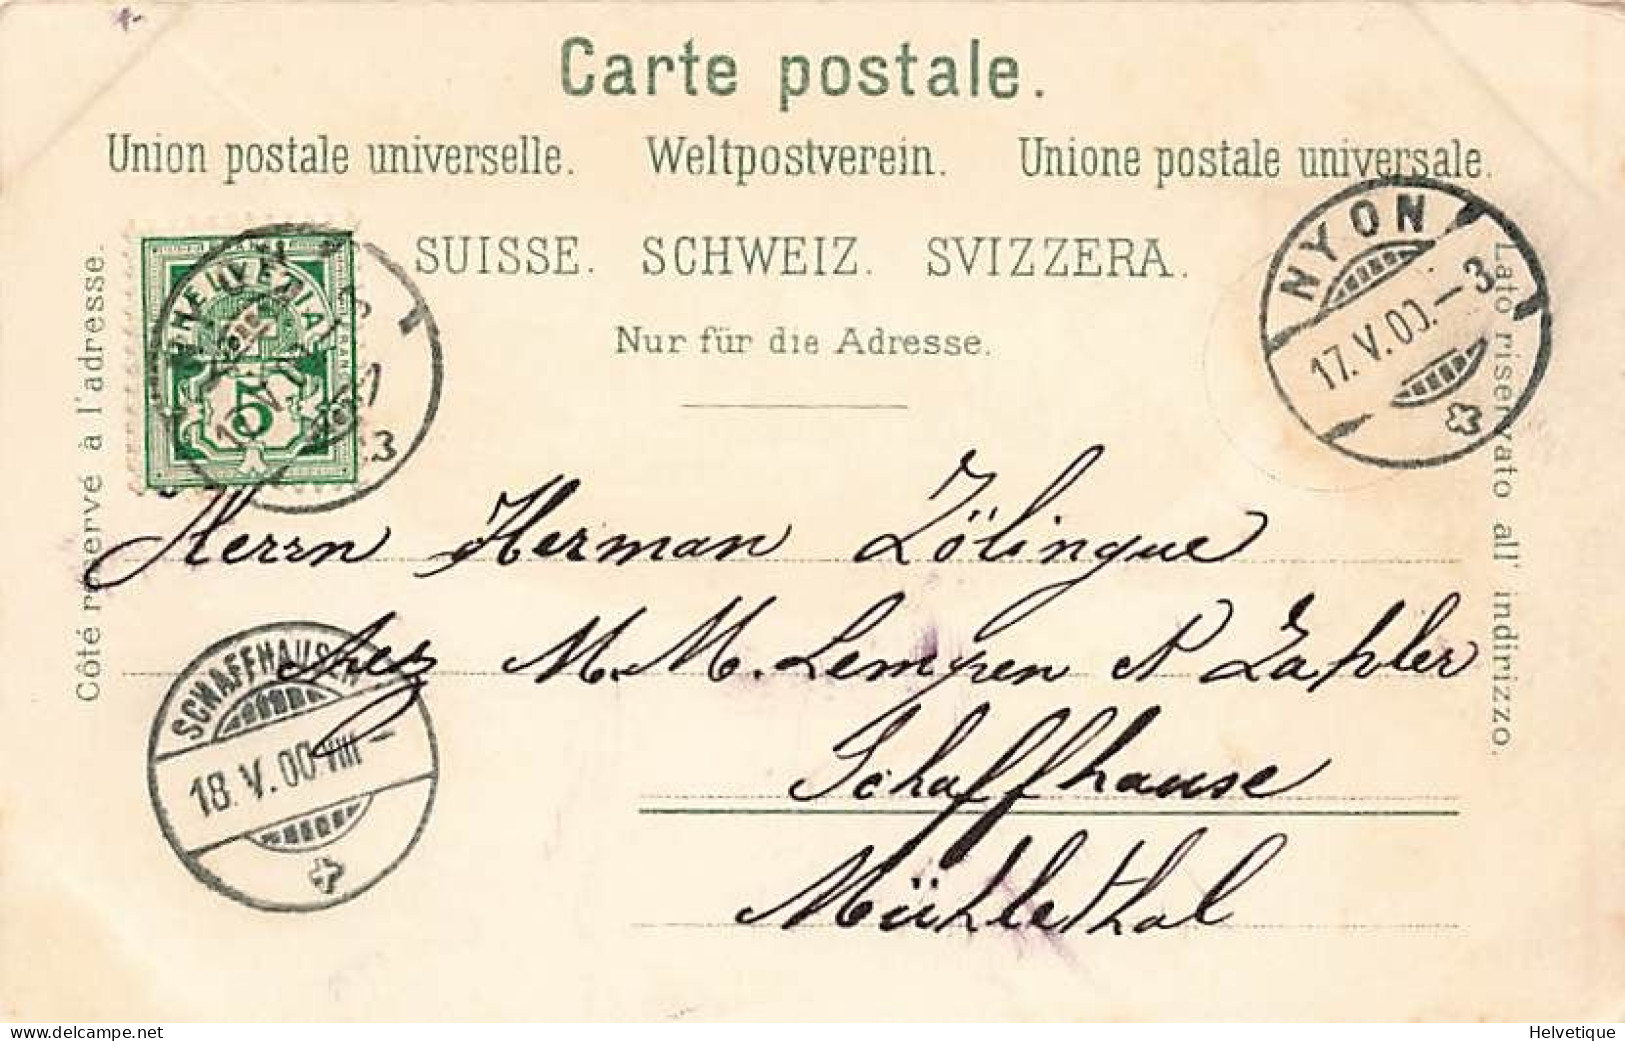 Carte postale.
Union postale universelle. Weltpostverein. Unione postale universale.
SUISSE. SCHWEIZ. SVIZZERA.
Nur für die Adresse.
Côté réservé à l'adresse.
Lato riservato all' indirizzo.
HELVETIA
FRANCO
5
NYON
17.V.00.–3
Herrn Herman Zölingue
chez M.M. Lempen & Zahler
Schaffhause
Mühlethal
SCHAFFHAUSEN
18.V.00 VIII –
Helvetique